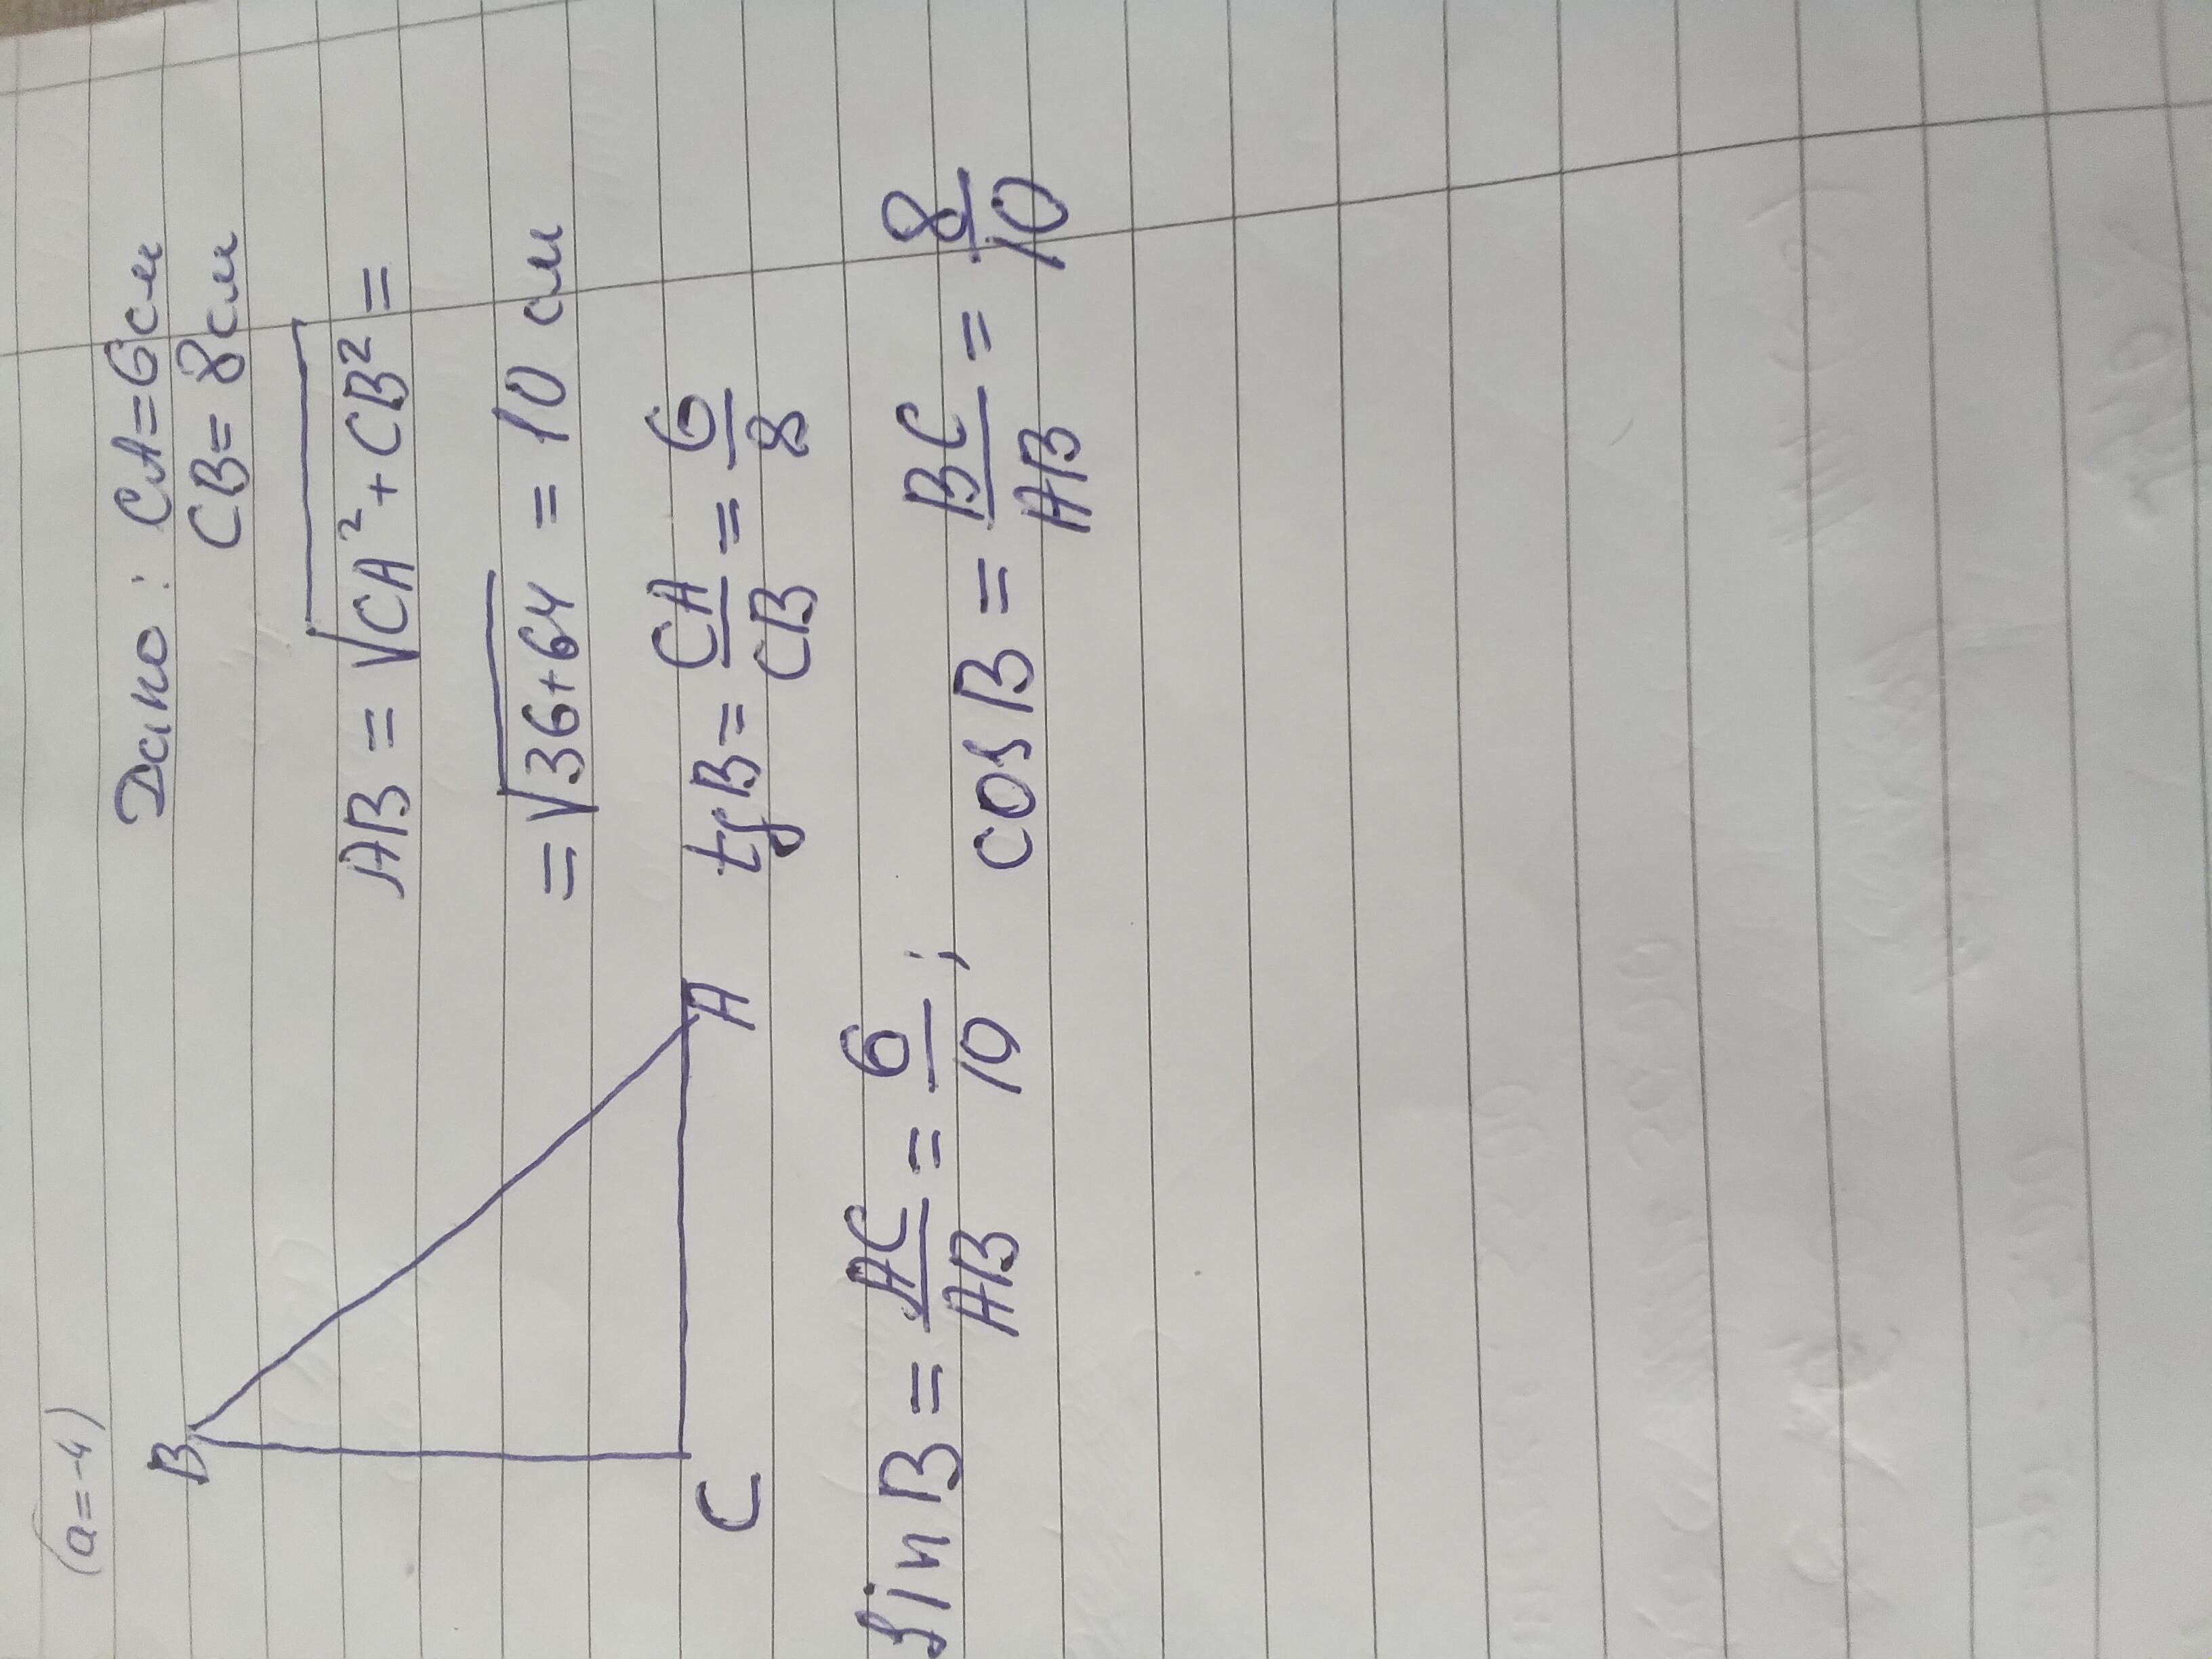 (a=-4)
Дано: CA=6см
CB=8см
B
AB = √CA²+CB² =
= √36+64 = 10 см
C
A
tgB = CA/CB = 6/8
sin B = AC/AB = 6/10; cos B = BC/AB = 8/10